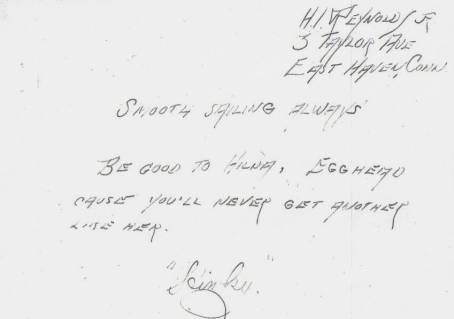 H.I. Reynolds Jr
3 Taylor Ave
East Haven, Conn
Smooth sailing always
Be good to Hilda, Egghead
cause you'll never get another
like her.